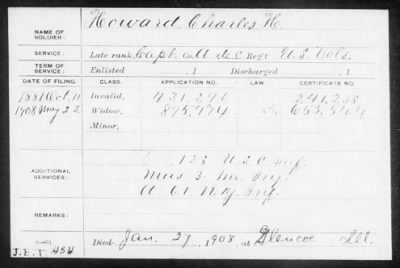 NAME OF SOLDIER: Howard, Charles H.
SERVICE: Late rank, Capt. & A de C Regt U.S. Vols.
TERM OF SERVICE: Enlisted , 1 Discharged , 1
DATE OF FILING. CLASS. APPLICATION NO. CERTIFICATE NO.
1881 Oct. 11 Invalid, 431,296 241,238
1908 May 22 Widow, 895,774 653,544
Minor,
ADDITIONAL SERVICES: Col. 128 U.S.C. Inf.
Mus 3. Me. Inf.
61 N.Y. Inf.
REMARKS:
Died Jan. 27, 1908, at Glencoe Ill.
J.E.T. 454